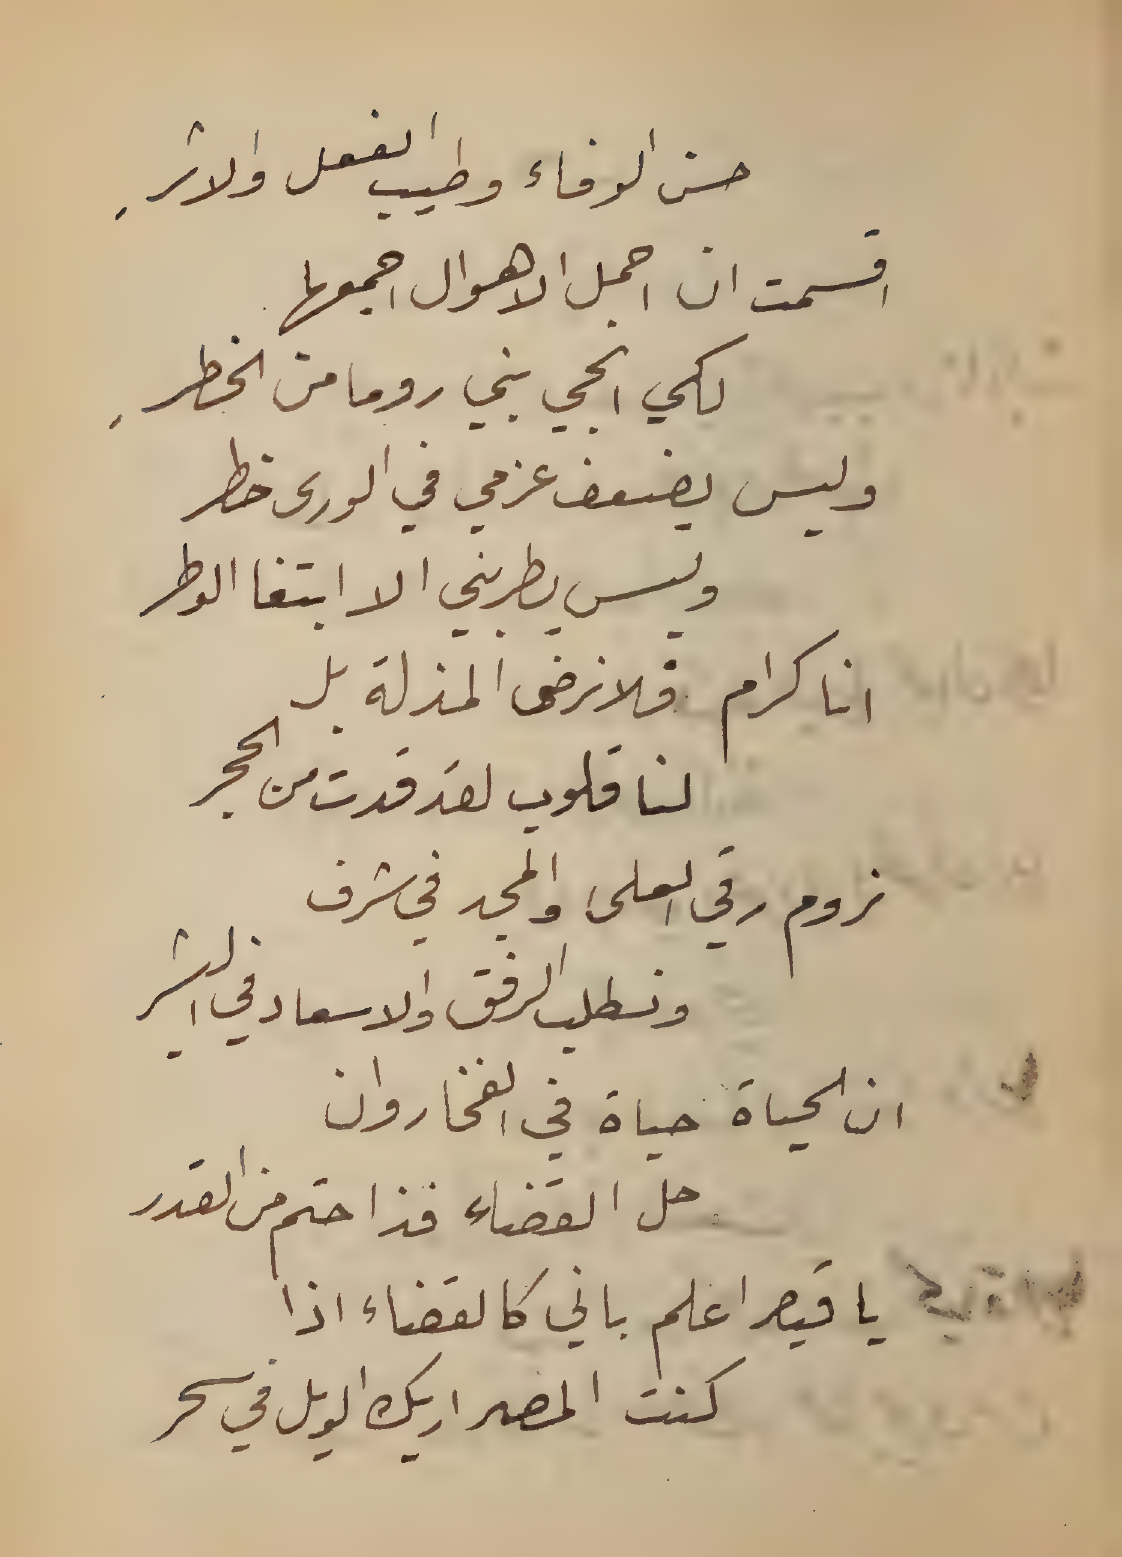 حسن الوفاء وطيب الفعل والاثر
اقسمت ان احمل الاهوال اجمعها
لكي انجي بني روما من الخطر
وليس يضعف عزمي في الورى خطر
وليس يطربني الا ابتغا الوطر
انا كرام فلا نرضى المذلة بل
لنا قلوب لقد قدت من الحجر
نروم رقي العلى والمجد في شرف
ونطلب الرفق والاسعاد في البشر
ان الحياة حياة في الفخار وان
حل القضاء فذا حتم من القدر
يا قيصر اعلم باني كالقضاء اذا
كنت المصر اريك الويل في سحر